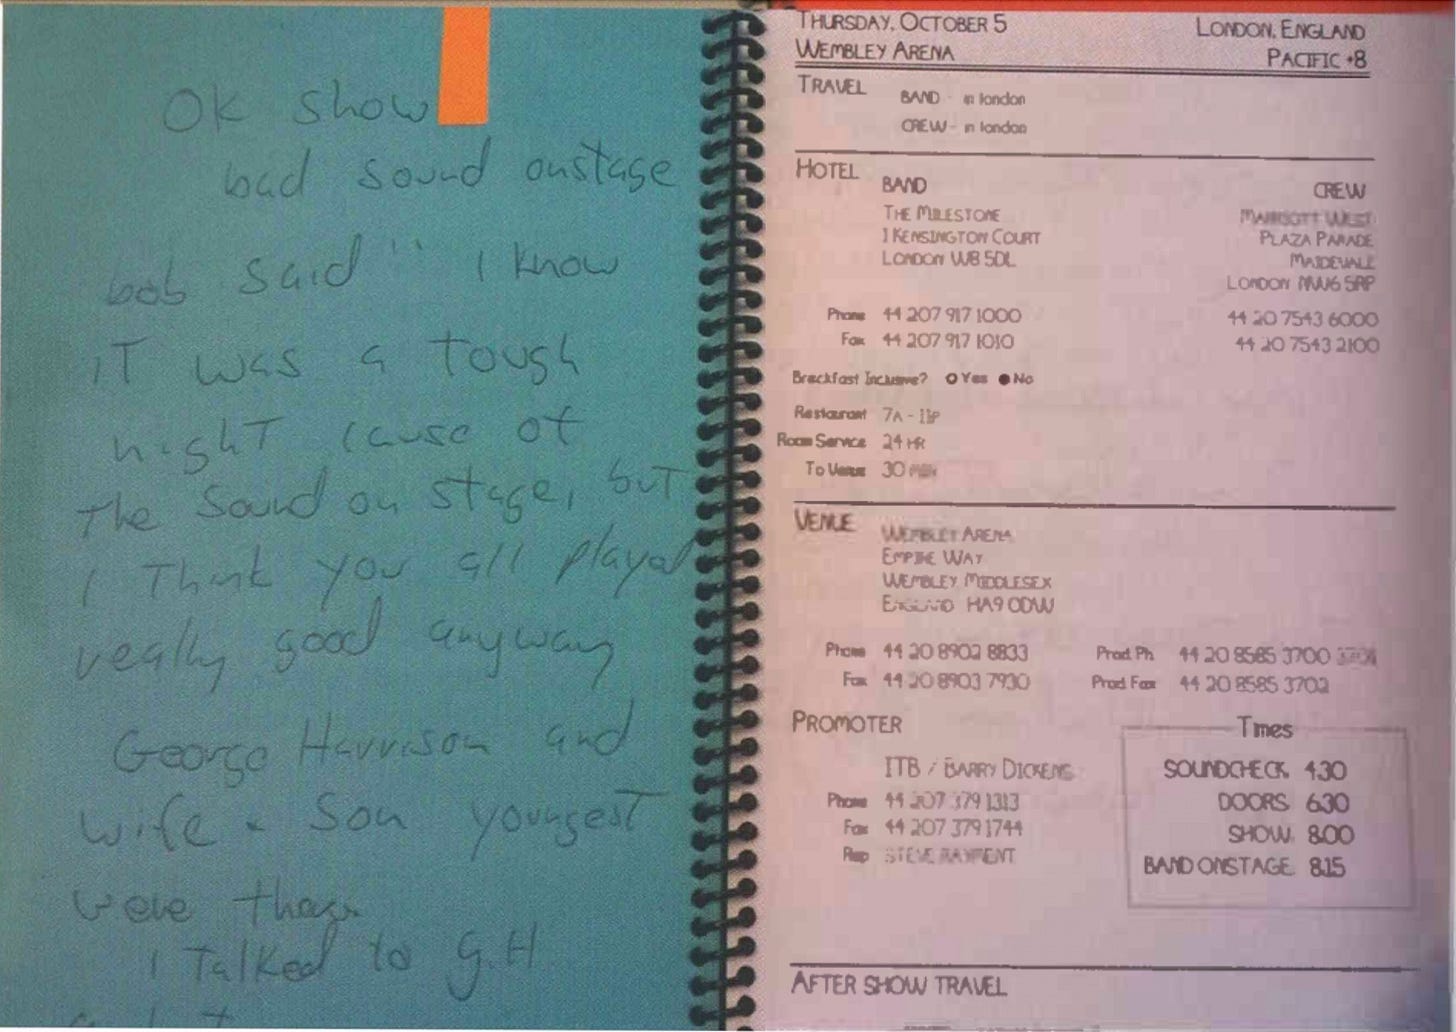 Ok show
bad sound onstage
bob said " I know
iT was a Tough
nighT cause of
The Sound on stage, buT
I Think you all played
really good anyway
George Harrison and
wife & Son youngesT
were there
I Talked to G.H
THURSDAY, OCTOBER 5
LONDON, ENGLAND
WEMBLEY ARENA
PACIFIC +8
TRAVEL
BAND - in london
CREW - in london
HOTEL
BAND
THE MILESTONE
1 KENSINGTON COURT
LONDON W8 5DL
CREW
MARRIOTT WEST
PLAZA PARADE
MAIDEVALE
LONDON NW6 5RP
Phone 44 207 917 1000
44 20 7543 6000
Fax 44 207 917 1010
44 20 7543 2100
Breckfast Inclusive? Yes No
Restaurant 7A - 11P
Room Service 24 HR
To Venue 30 MIN
VENUE
WEMBLEY ARENA
EMPIRE WAY
WEMBLEY MIDDLESEX
ENGLAND HA9 0DW
Phone 44 20 8902 8833
Prod. Ph 44 20 8585 3700
Fax 44 20 8903 7930
Prod Fax 44 20 8585 3702
PROMOTER
ITB / BARRY DICKENS
Phone 44 207 379 1313
Fax 44 207 379 1744
Rep STEVE RAYMENT
Times
SOUNDCHECK 4:30
DOORS 6:30
SHOW 8:00
BAND ONSTAGE 8:15
AFTER SHOW TRAVEL